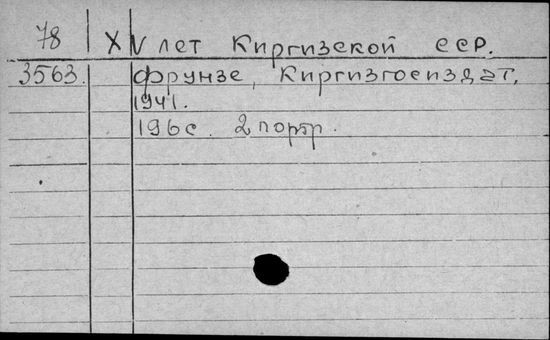 78 XV лет Киргизской ССР.
3563. Фрунзе, Киргизгосиздат,
1941.
196с. 2 портр.